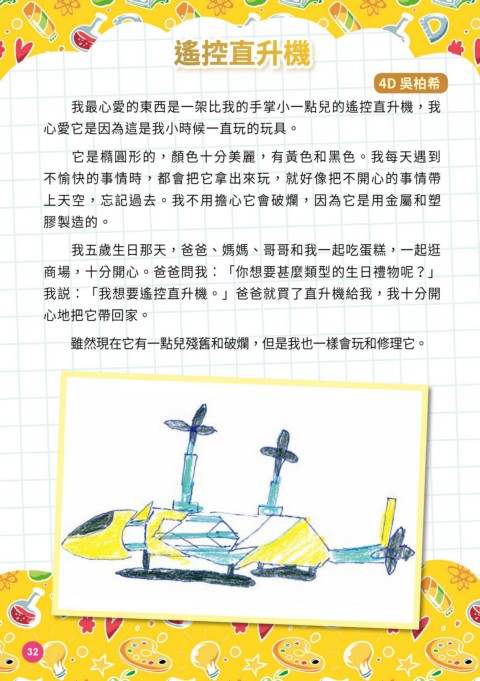 遙控直升機
4D 吳柏希
我最心愛的東西是一架比我的手掌小一點兒的遙控直升機，我
心愛它是因為這是我小時候一直玩的玩具。
它是橢圓形的，顏色十分美麗，有黃色和黑色。我每天遇到
不愉快的事情時，都會把它拿出來玩，就好像把不開心的事情帶
上天空，忘記過去。我不用擔心它會破爛，因為它是用金屬和塑
膠製造的。
我五歲生日那天，爸爸、媽媽、哥哥和我一起吃蛋糕，一起逛
商場，十分開心。爸爸問我：「你想要甚麼類型的生日禮物呢？」
我説：「我想要遙控直升機。」爸爸就買了直升機給我，我十分開
心地把它帶回家。
雖然現在它有一點兒殘舊和破爛，但是我也一樣會玩和修理它。
32